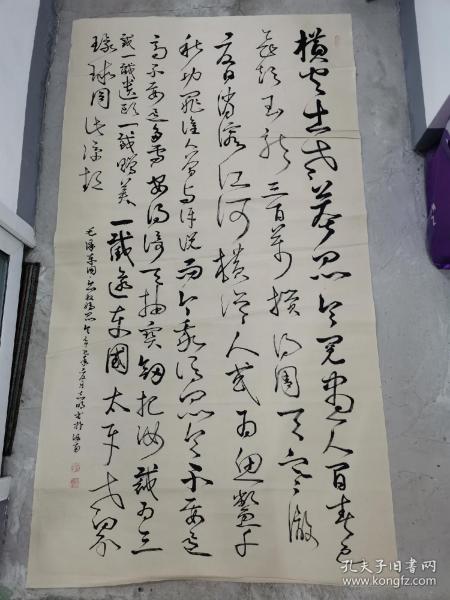 横空出世莽昆仑阅尽人间春色
飞起玉龙三百万搅得周天寒彻
夏日消溶江河横溢人或为鱼鳖千
秋功罪谁人曾与评说而今我谓昆仑不要这
高不要这多雪安得倚天抽宝剑把汝裁为三
截一截遗欧一截赠美一截还东国太平世界
环球同此凉热
毛泽东词念奴娇昆仑
孔夫子旧书网
www.kongfz.com